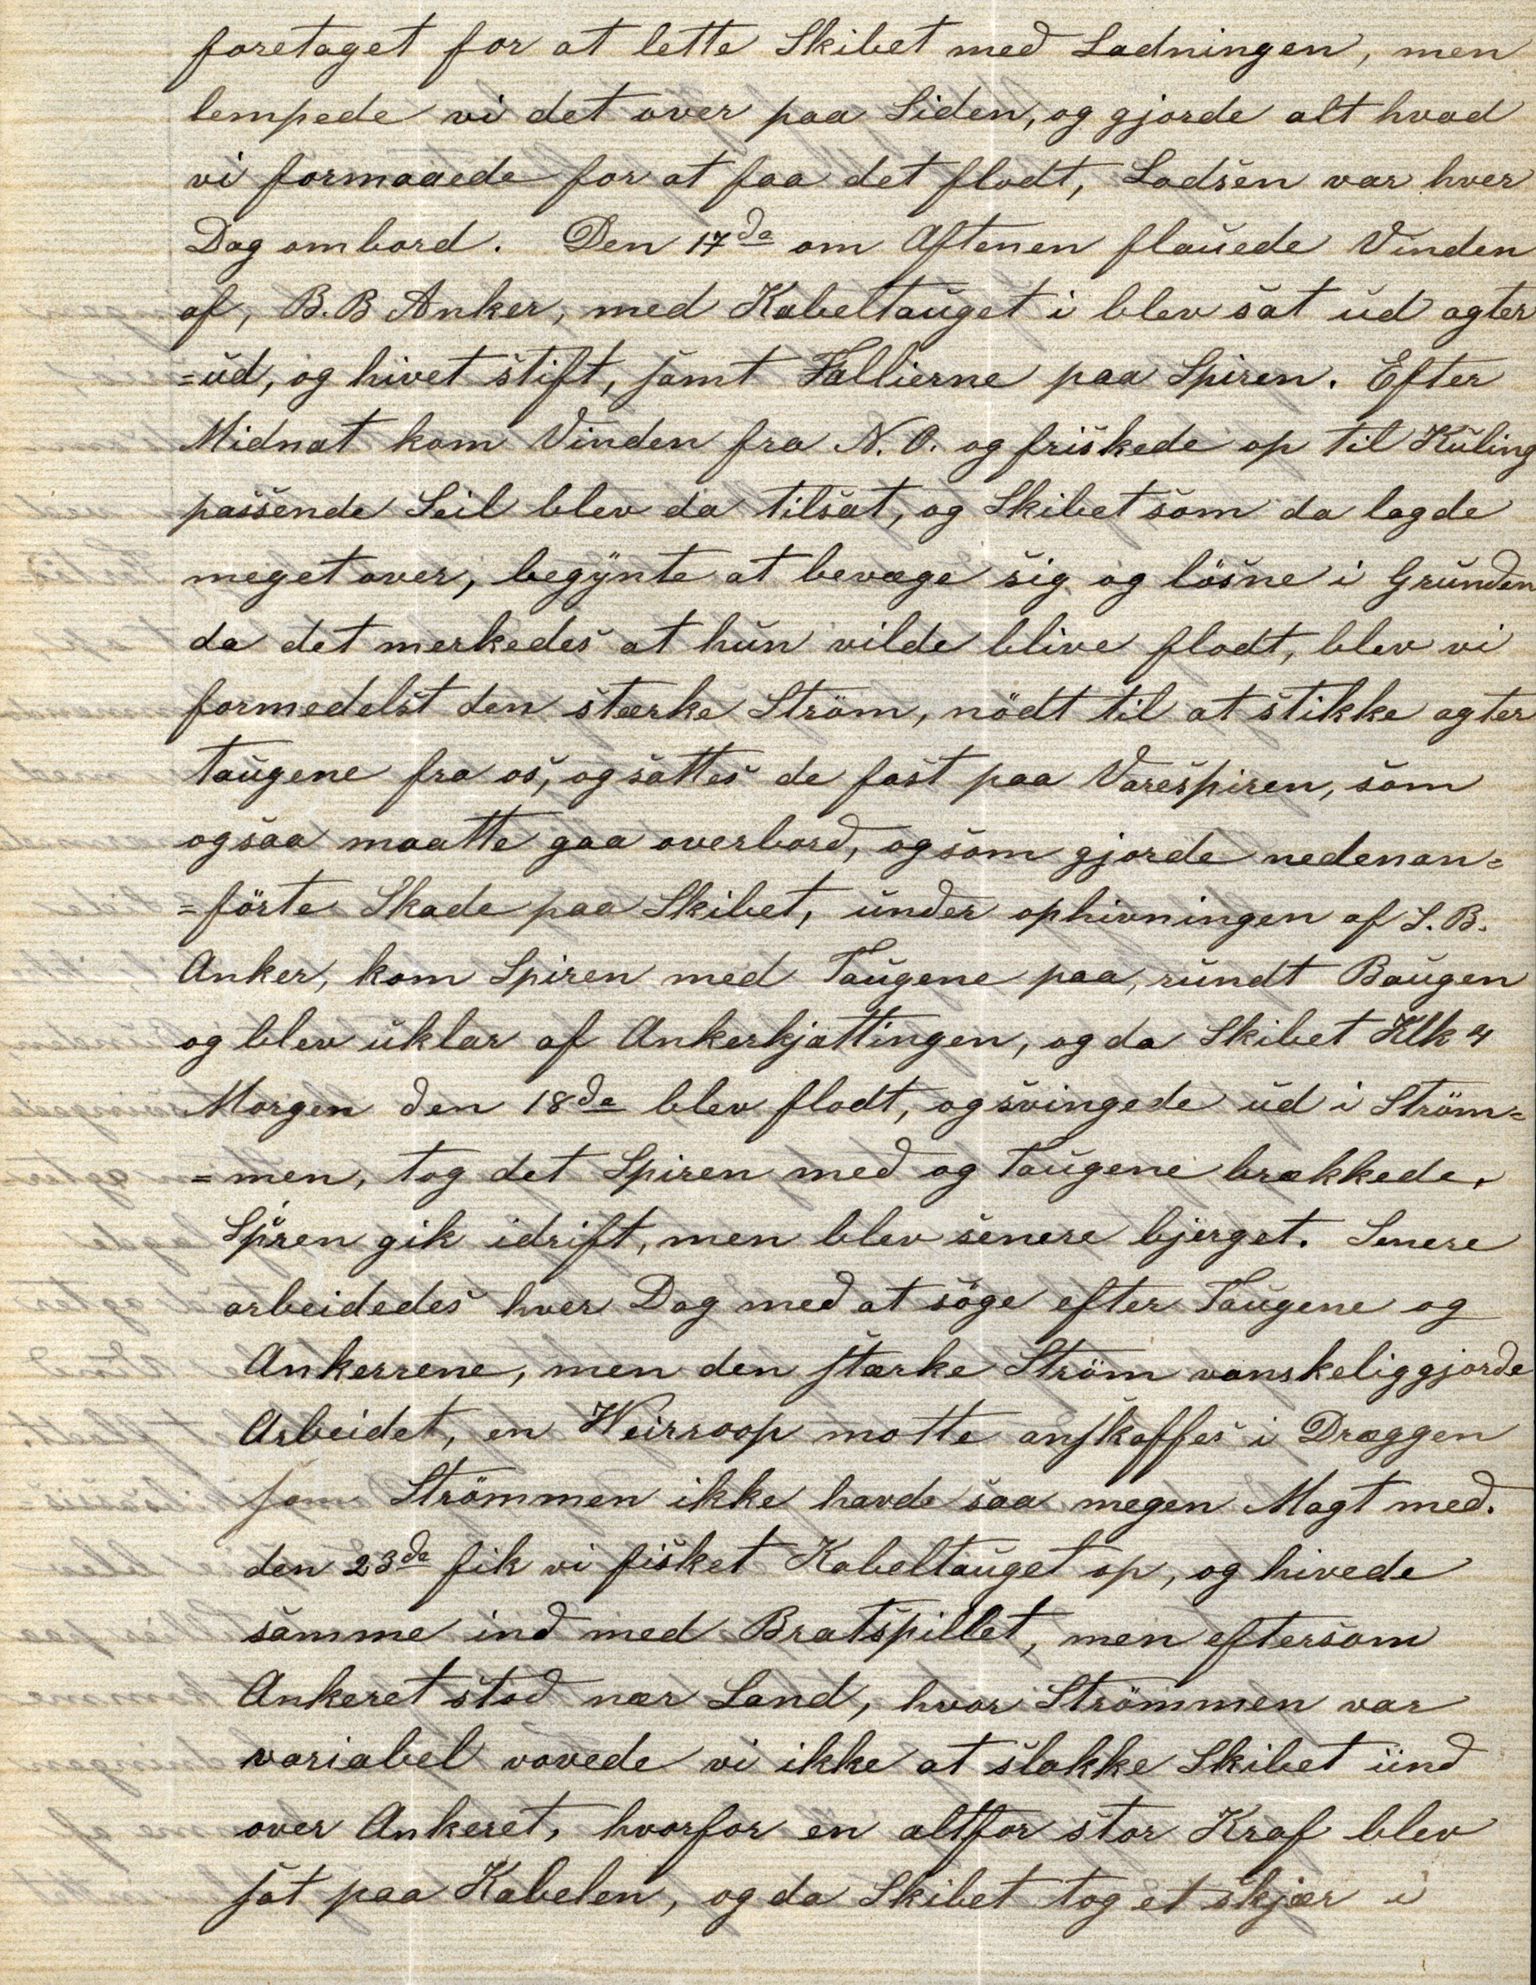 foretaget for at lette Skibet med Ladningen, men
lempede vi det over paa Siden, og gjorde alt hvad
vi formaaede for at faa det flodt, Lodsen var hver
Dag ombord. Den 17de om Aftenen flauede Vinden
af, B.B Anker, med Kabeltauget i blev sat ud agter
=ud, og hivet stift, samt Fallierne paa Spiren. Efter
Midnat kom Vinden fra N.O. og friskede op til Kuling
passende Seil blev da tilsat, og Skibet som da lagde
meget over, begynte at bevæge sig og løsne i Grunden
da det merkedes at hun vilde blive flodt, blev vi
formedelst den stærke Ström, nödt til at stikke agter
taugene fra os, og sattes de fast paa Varespiren, som
ogsaa maatte gaa overbord, og som gjorde nedenan=
=förte Skade paa Skibet, under ophivningen af S.B.
Anker, kom Spiren med Taugene paa, rundt Baugen
og blev uklar af Ankerkjattingen, og da Skibet Klk 4
Morgen den 18de blev flodt, og svingede ud i Ström=
=men, tog det Spiren med og Taugene brækkede.
Spiren gik idrift, men blev senere bjerget. Senere
arbeidedes hver Dag med at söge efter Taugene og
Ankerrene, men den stærke Ström vanskeliggjorde
Arbeidet, en Weirroop motte anskaffes i Dræggen
som Strömmen ikke havde saa megen Magt med.
den 23de fik vi fisket Kabeltauget op, og hivede
samme ind med Bratspillet, men eftersom
Ankeret stod nær Land, hvor Strömmen var
variabel vovede vi ikke at slakke Skibet ind
over Ankeret, hvorfor en altfor stor Kraf blev
sat paa Kabelen, og da Skibet tog et skjær i